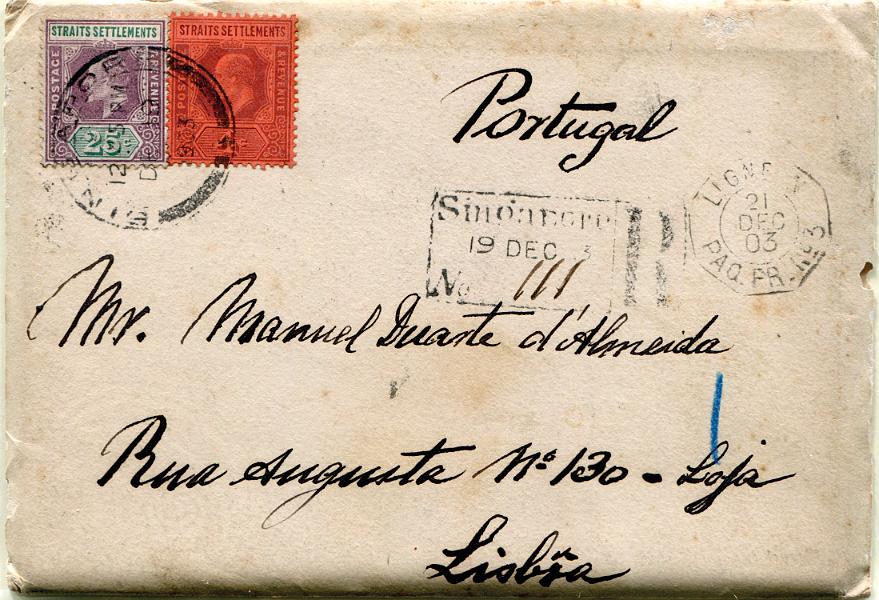 STRAITS SETTLEMENTS
POSTAGE
& REVENUE
25c
STRAITS SETTLEMENTS
& REVENUE
Portugal
Singapore
19 DEC 3
No 111
R
LIGNE N
21
DEC
03
PAQ. FR. No 3
Mr. Manuel Duarte d'Almeida
Rua Augusta Nº 130 - Loja
Lisbõa